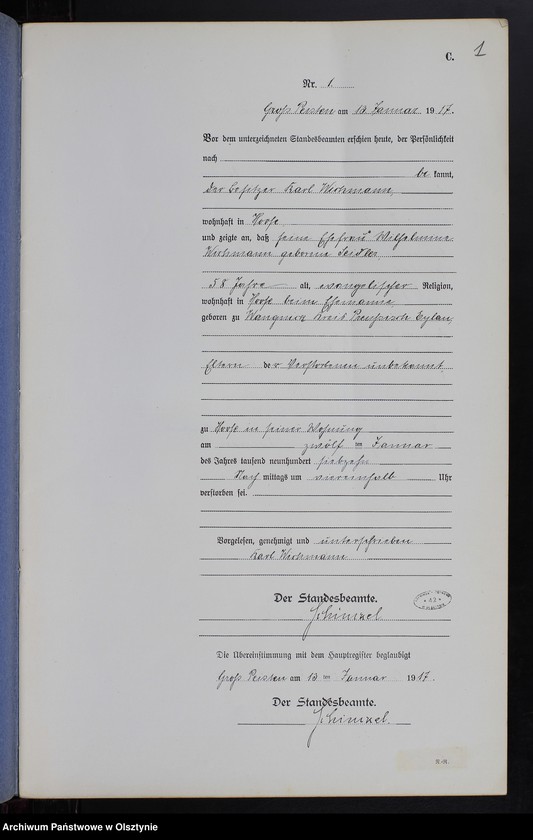 C. 1
Nr. 1.
Groß Peisten am 13. Januar 1917.
Vor dem unterzeichneten Standesbeamten erschien heute, der Persönlichkeit
nach
be kannt,
der Besitzer Karl Werkmann,
wohnhaft in
und zeigte an, daß seine Ehefrau Wilhelmine
Werkmann geborene Seidler,
58 Jahre alt, evangelischer Religion,
wohnhaft in beim Ehemanne,
geboren zu Kreis Preußisch Eylau,
Eltern der Verstorbenen unbekannt,
zu in seiner Wohnung
am zwölften Januar
des Jahres tausend neunhundert siebzehn
Nach mittags um viereinhalb Uhr
verstorben sei.
Vorgelesen, genehmigt und unterschrieben
Karl Werkmann
Der Standesbeamte.
Schimzel
Die Übereinstimmung mit dem Hauptregister beglaubigt
Groß Peisten am 13ten Januar 1917.
Der Standesbeamte.
Schimzel.
Archiwum Państwowe w Olsztynie